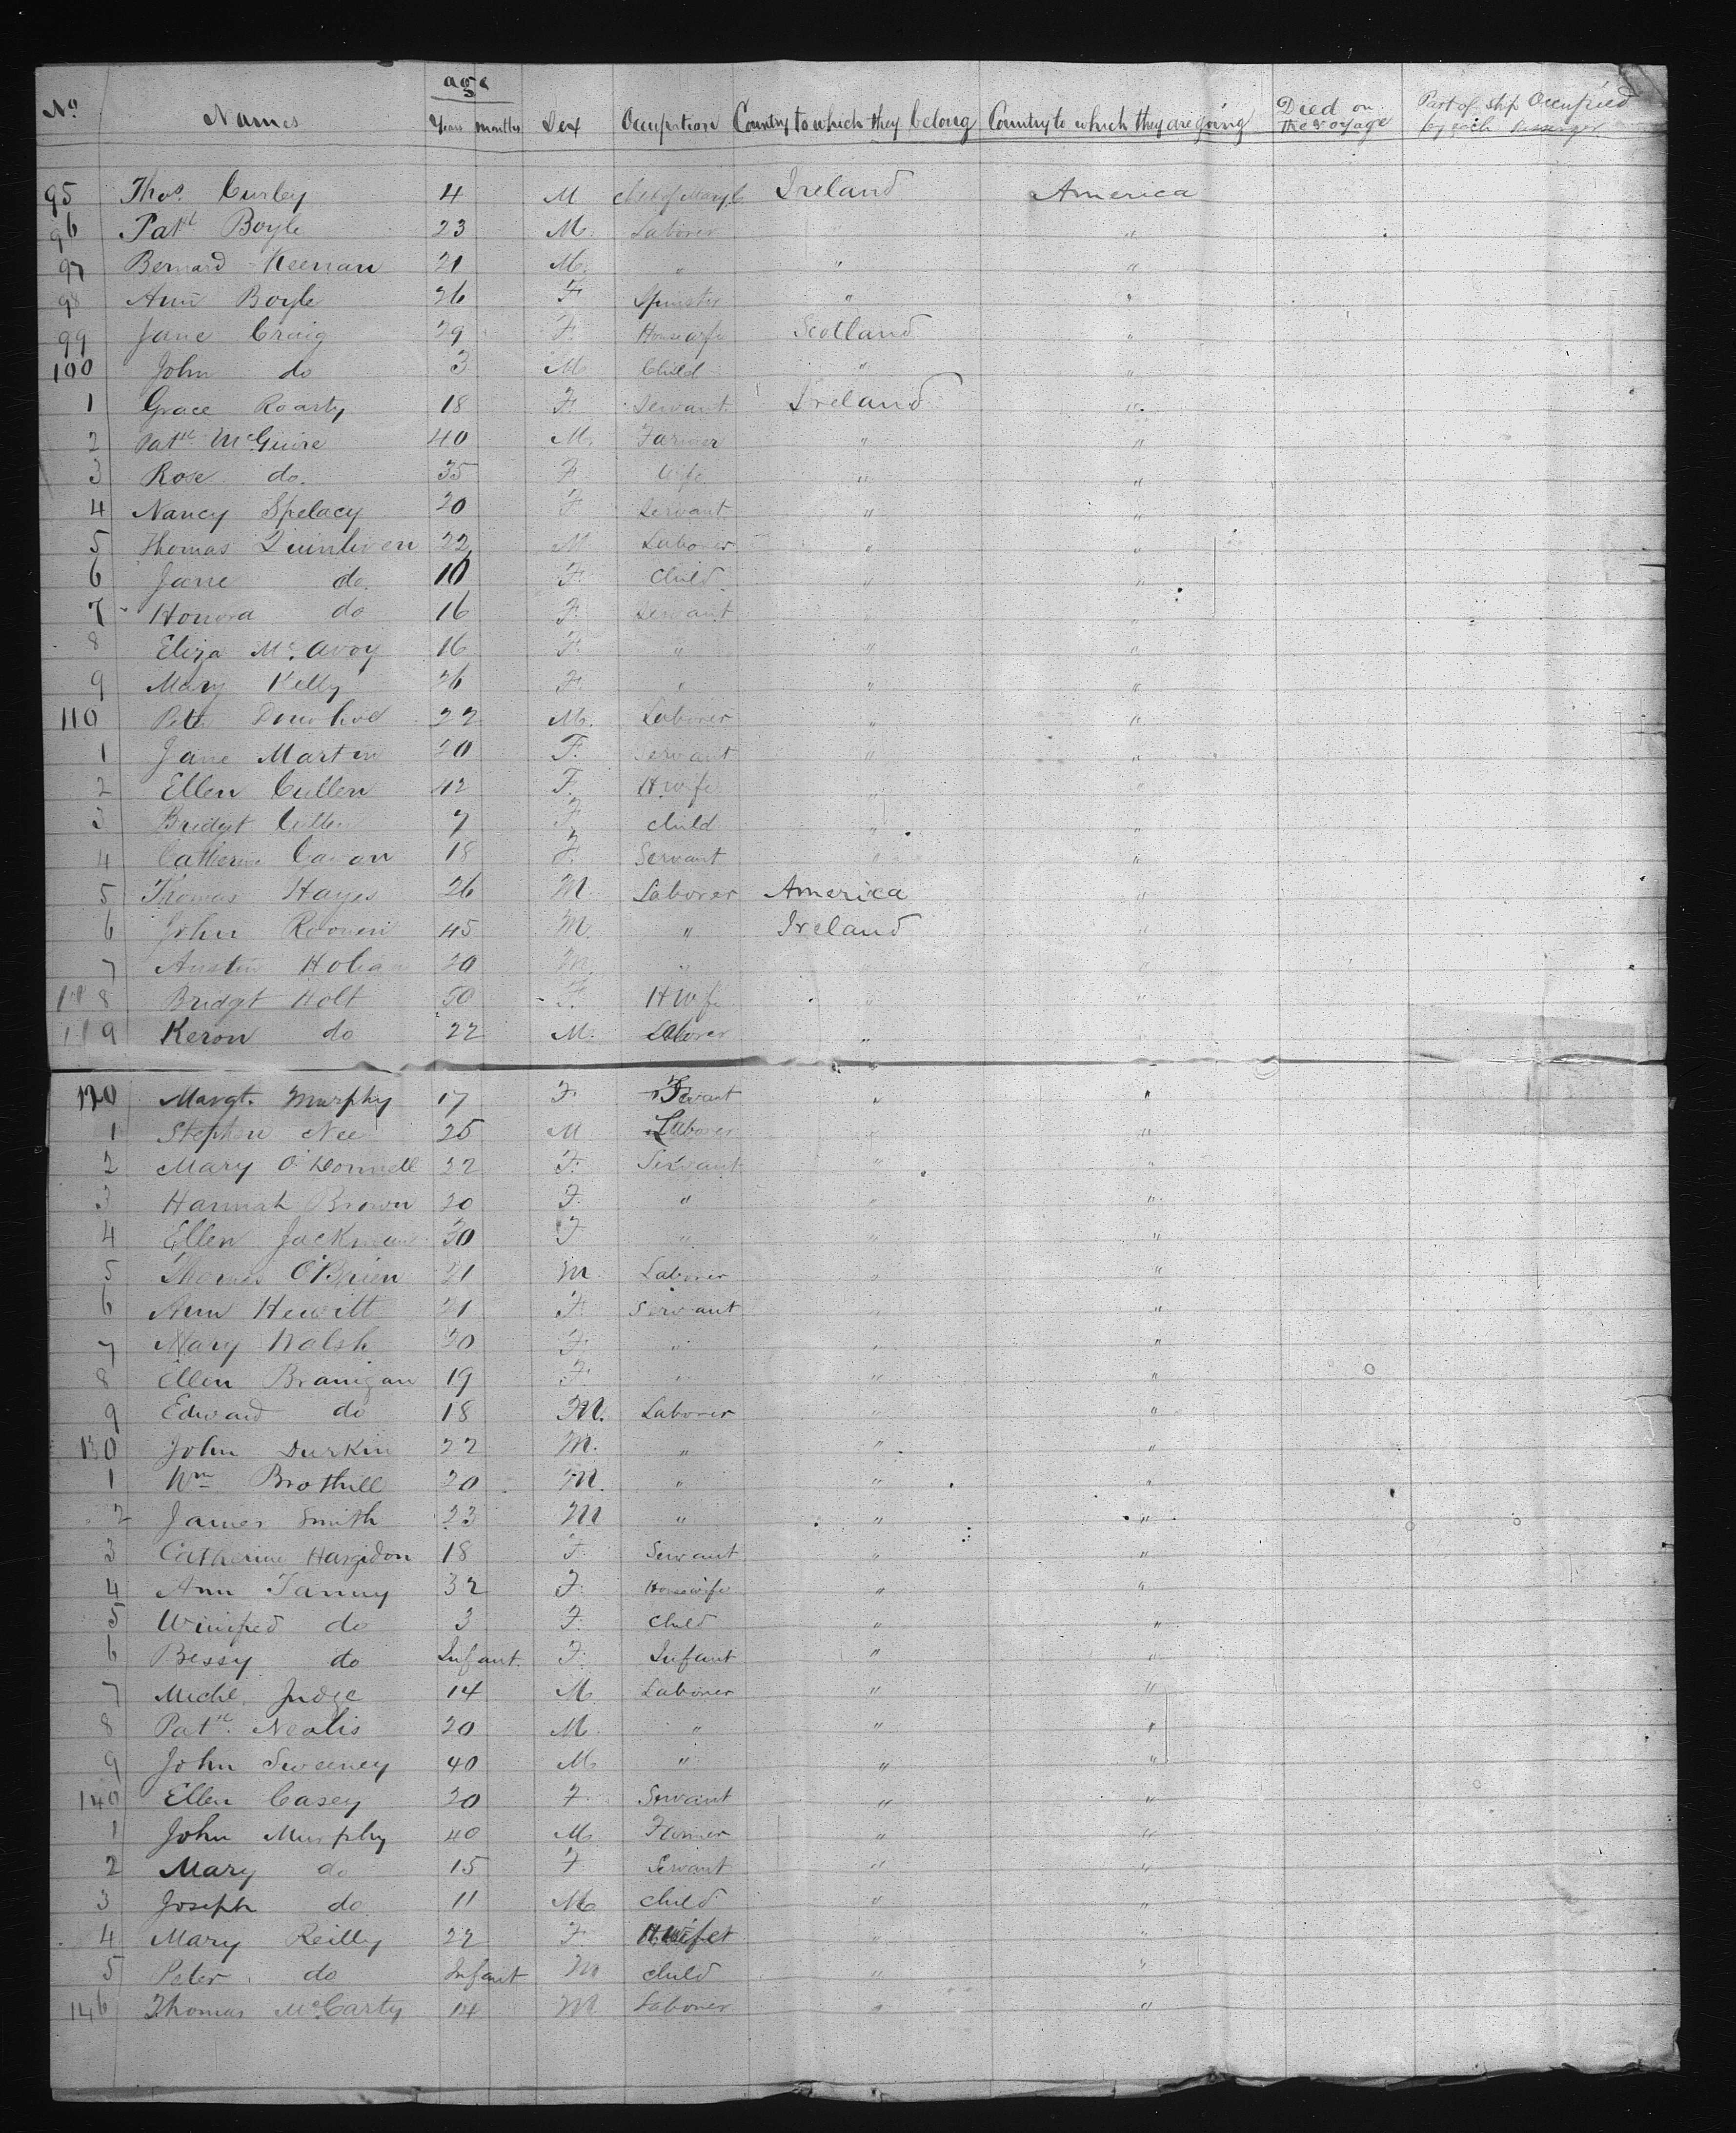 age
No Names Years months Sex Occupation Country to which they belong Country to which they are going Died on the voyage Part of ship Occupied by each passenger
95 Thos. Curley 4 M Child of Mary C Ireland America
96 Patk Boyle 23 M. Laborer " "
97 Bernard Keenan 21 M. " " "
98 Ann Boyle 26 F Spinster " "
99 Jane Craig 29 F. Housewife Scotland "
100 John do 3 M Child " "
1 Grace Roarty 18 F. Servant Ireland "
2 Patk McGuire 40 M. Farmer " "
3 Rose do. 35 F Wife " "
4 Nancy Spelacy 20 F Servant " "
5 Thomas Quinliven 22 M Laborer " "
6 Jane do. 10 F. Child " "
7 Honora do 16 F. Servant "
8 Eliza McAvoy 16 F. " " "
9 Mary Kelly 26 F " " "
110 Donohoe 22 M. Laborer " "
1 Jane Martin 20 F. Servant " "
2 Ellen Cullen 42 F. H wife " "
3 Bridget Cullen 7 F Child " "
4 Catherine Cavan 18 F. Servant " "
5 Thomas Hayes 26 M. Laborer America "
6 John 45 M. " Ireland "
7 Austin 20 M. " " "
118 Bridgt Holt 50 F. H Wife " "
119 Keron do 22 M. Laborer "
120 Margt. Murphy 17 F. Servant " "
1 Stephen Nee 25 M Laborer " "
2 Mary O'Donnell 22 F. Servant " "
3 Hannah Brown 20 F. " " "
4 Ellen Jackman 30 F " " "
5 Thomas O'Brien 21 M Laborer " "
6 Ann Hewitt 21 F. Servant " "
7 Mary Walsh 30 F. " " "
8 Ellen Branigan 19 F. " " "
9 Edward do 18 M. Laborer " "
130 John Durkin 22 M. " " "
1 Wm Brothill 20 M. " " "
2 James Smith 23 M " " "
3 Catherine Hargidon 18 F. Servant " "
4 Ann Tanny 32 F. Housewife " "
5 Winifred do 3 F. Child " "
6 Bessy do Infant. F. Infant " "
7 Michl. Judge 14 M Laborer " "
8 Patk. Nealis 20 M. " " "
9 John Sweeney 40 M " " "
140 Ellen Casey 20 F. Servant " "
1 John Murphy 40 M. Farmer " "
2 Mary do 15 F Servant " "
3 Joseph do. 11 M Child " "
4 Mary Reilly 22 F " "
5 Peter do Infant M Child " "
146 Thomas McCarty 14 M Laborer " "